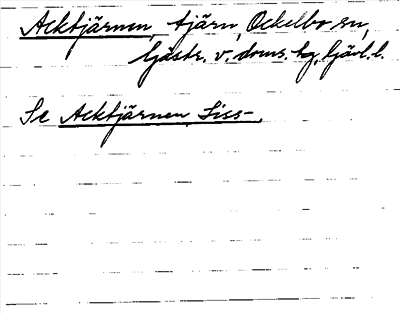 Acktjärnen, tjärn, Ockelbo sn,
Gästr. v. doms. hg, Gävl. l.
Se Acktjärnen, Liss-.